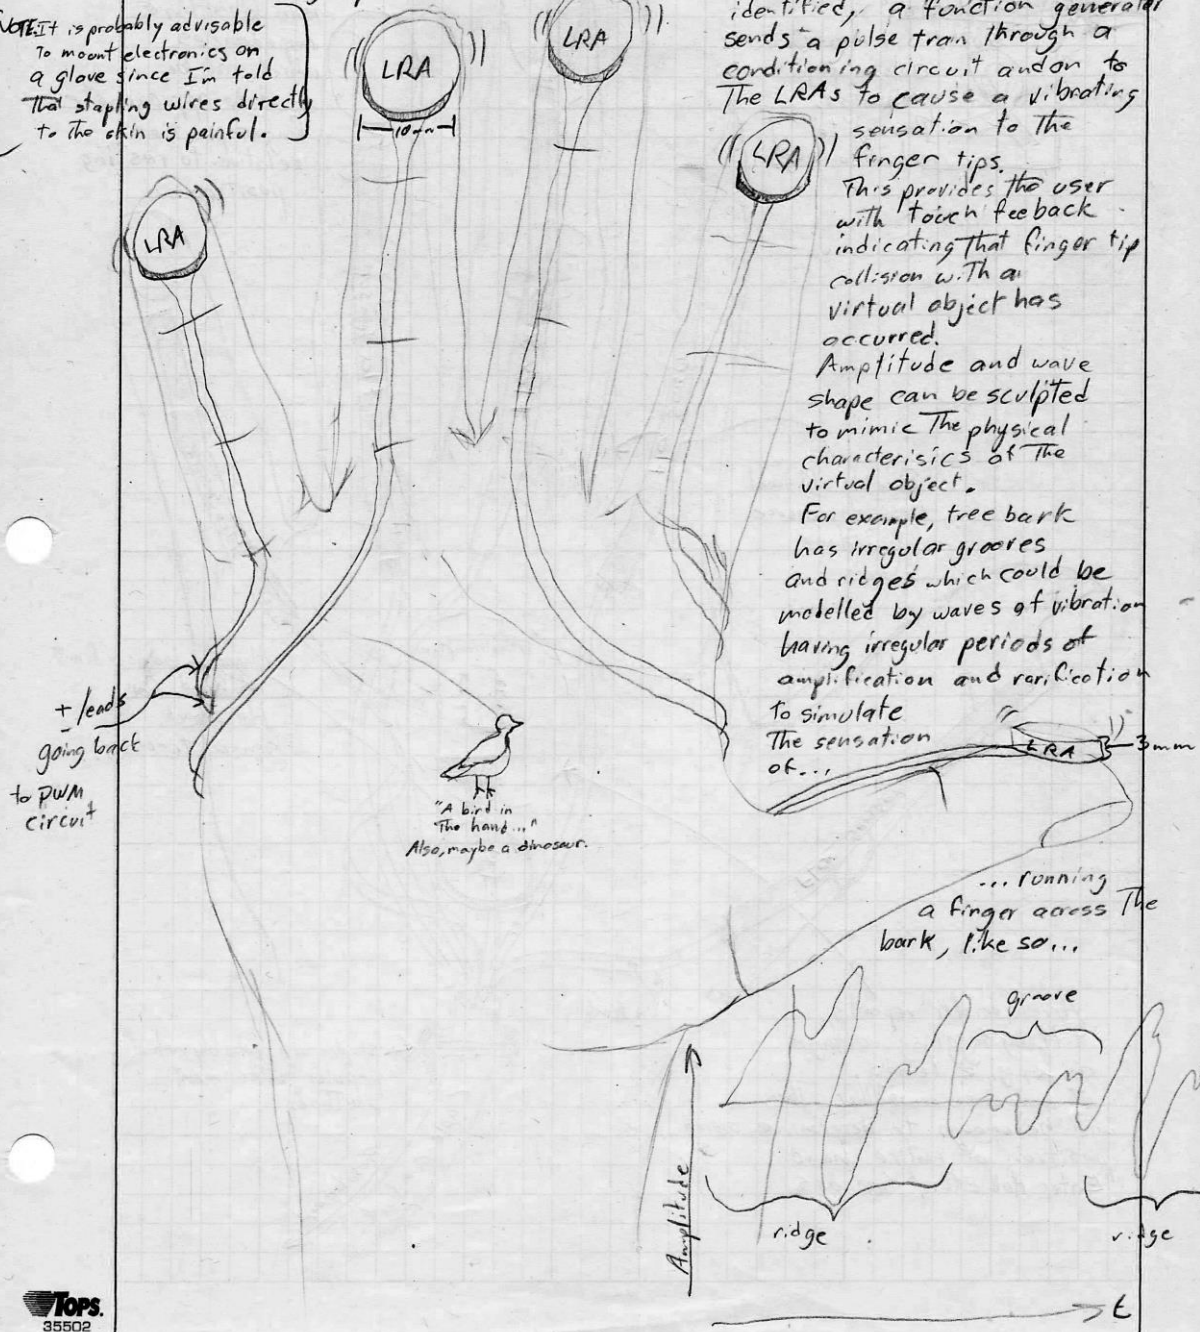 NOTE: It is probably advisable
To mount electronics on
a glove since I'm told
That stapling wires directly
to The skin is painful.
LRA
10mm
LRA
LRA
LRA
identified, a function generator
sends a pulse tran Through a
conditioning circuit and on to
The LRAs to cause a vibrating
sensation to The
finger tips.
This provides the user
with touch feeback
indicating That finger tip
collision with a
virtual object has
occurred.
Amplitude and wave
shape can be sculpted
to mimic The physical
characterisics of The
virtual object.
For example, tree bark
has irregular grooves
and ridges which could be
modelled by waves of vibration
having irregular periods of
amplification and rarification
to simulate
The sensation
of...
LRA
3mm
± leads
going back
to PWM
circuit
"A bird in
The hand..."
Also, maybe a dinosaur.
... running
a finger across The
bark, like so...
groove
Amplitude
ridge
ridge
t
TOPS.
35502